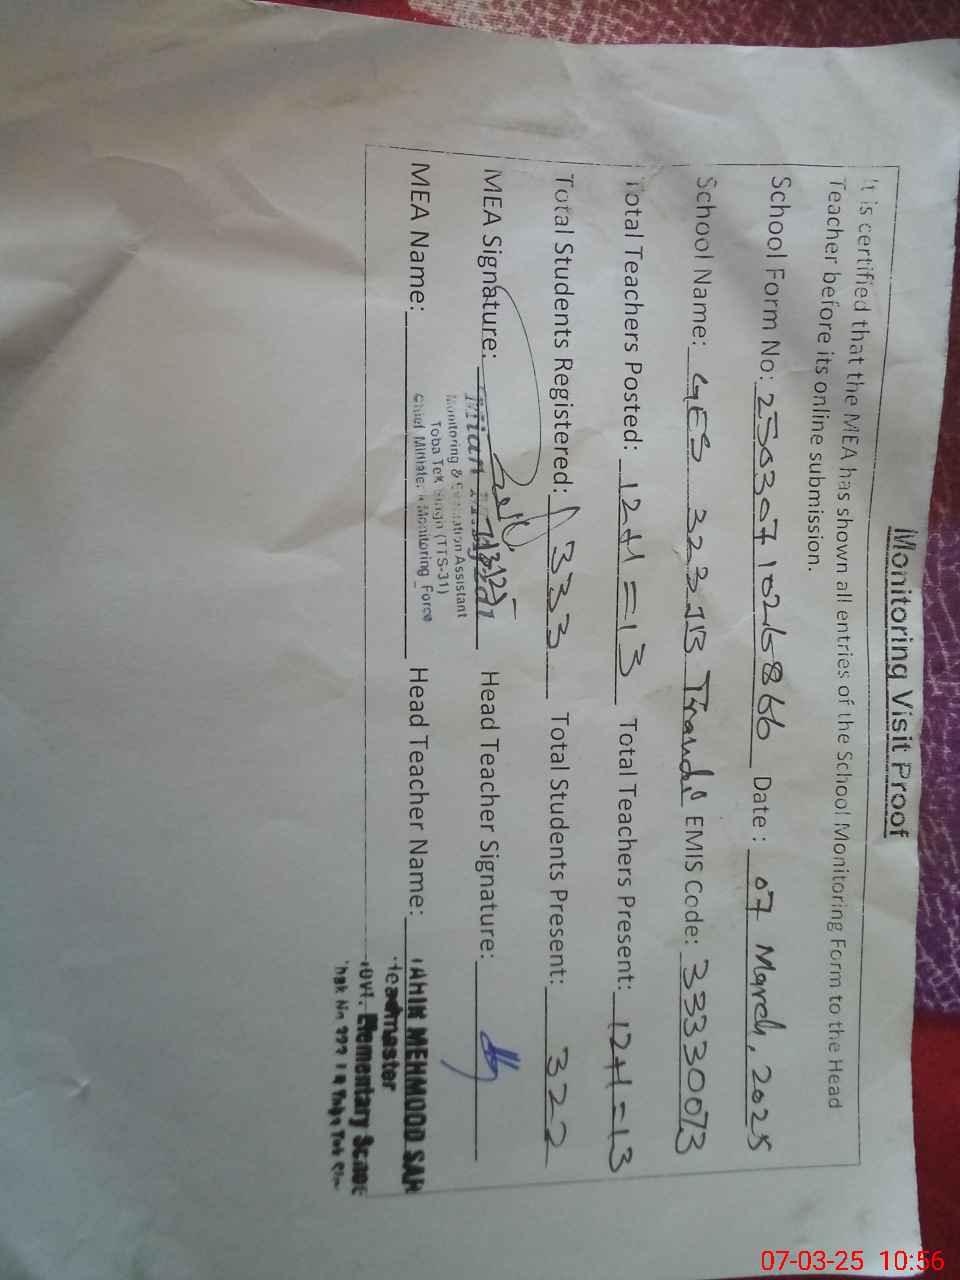 Monitoring Visit Proof
It is certified that the MEA has shown all entries of the School Monitoring Form to the Head
Teacher before its online submission.
School Form No: 25030710265866 Date : 07 March, 2025
School Name: GES 323 JB EMIS Code: 33330073
Total Teachers Posted: 12+1=13 Total Teachers Present: 12+1=13
Total Students Registered: 333 Total Students Present: 322
MEA Signature: Head Teacher Signature:
7/3/25
Monitoring & Evaluation Assistant
Toba Tek Singh (TTS-31)
Chief Minister's Monitoring Force
MEA Name: Head Teacher Name: TAHIR MEHMOOD
Headmaster
Govt. Elementary School
Chak No Toba Tek
07-03-25 10:56